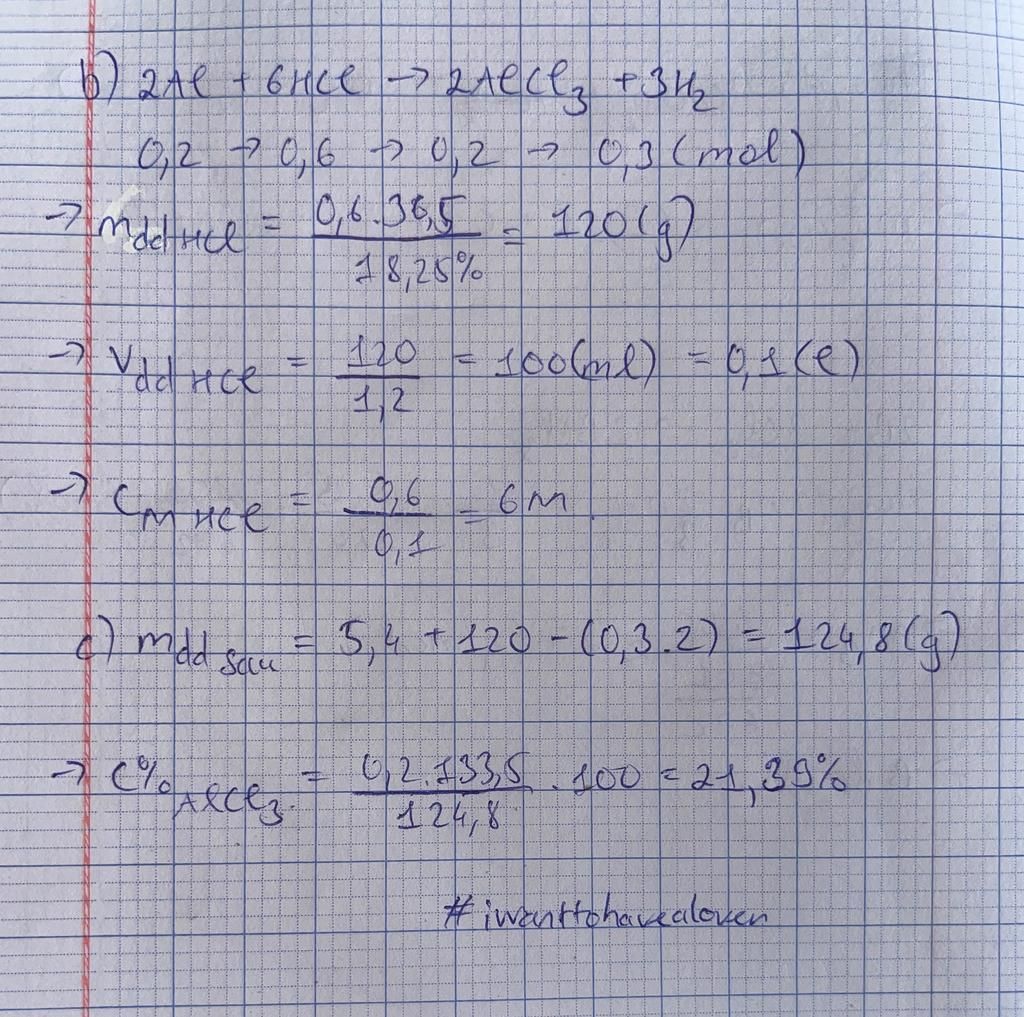 b) 2Al + 6HCl → 2AlCl₃ + 3H₂
0,2 → 0,6 → 0,2 → 0,3 (mol)
→ mdd HCl = 0,6.36,5 / 18,25% = 120(g)
→ Vdd HCl = 120 / 1,2 = 100(ml) = 0,1(l)
→ CM HCl = 0,6 / 0,1 = 6M.
c) mdd sau = 5,4 + 120 - (0,3.2) = 124,8(g)
→ C% AlCl₃ = 0,2.133,5 / 124,8 . 100 = 21,39%
#iwanttohavealover